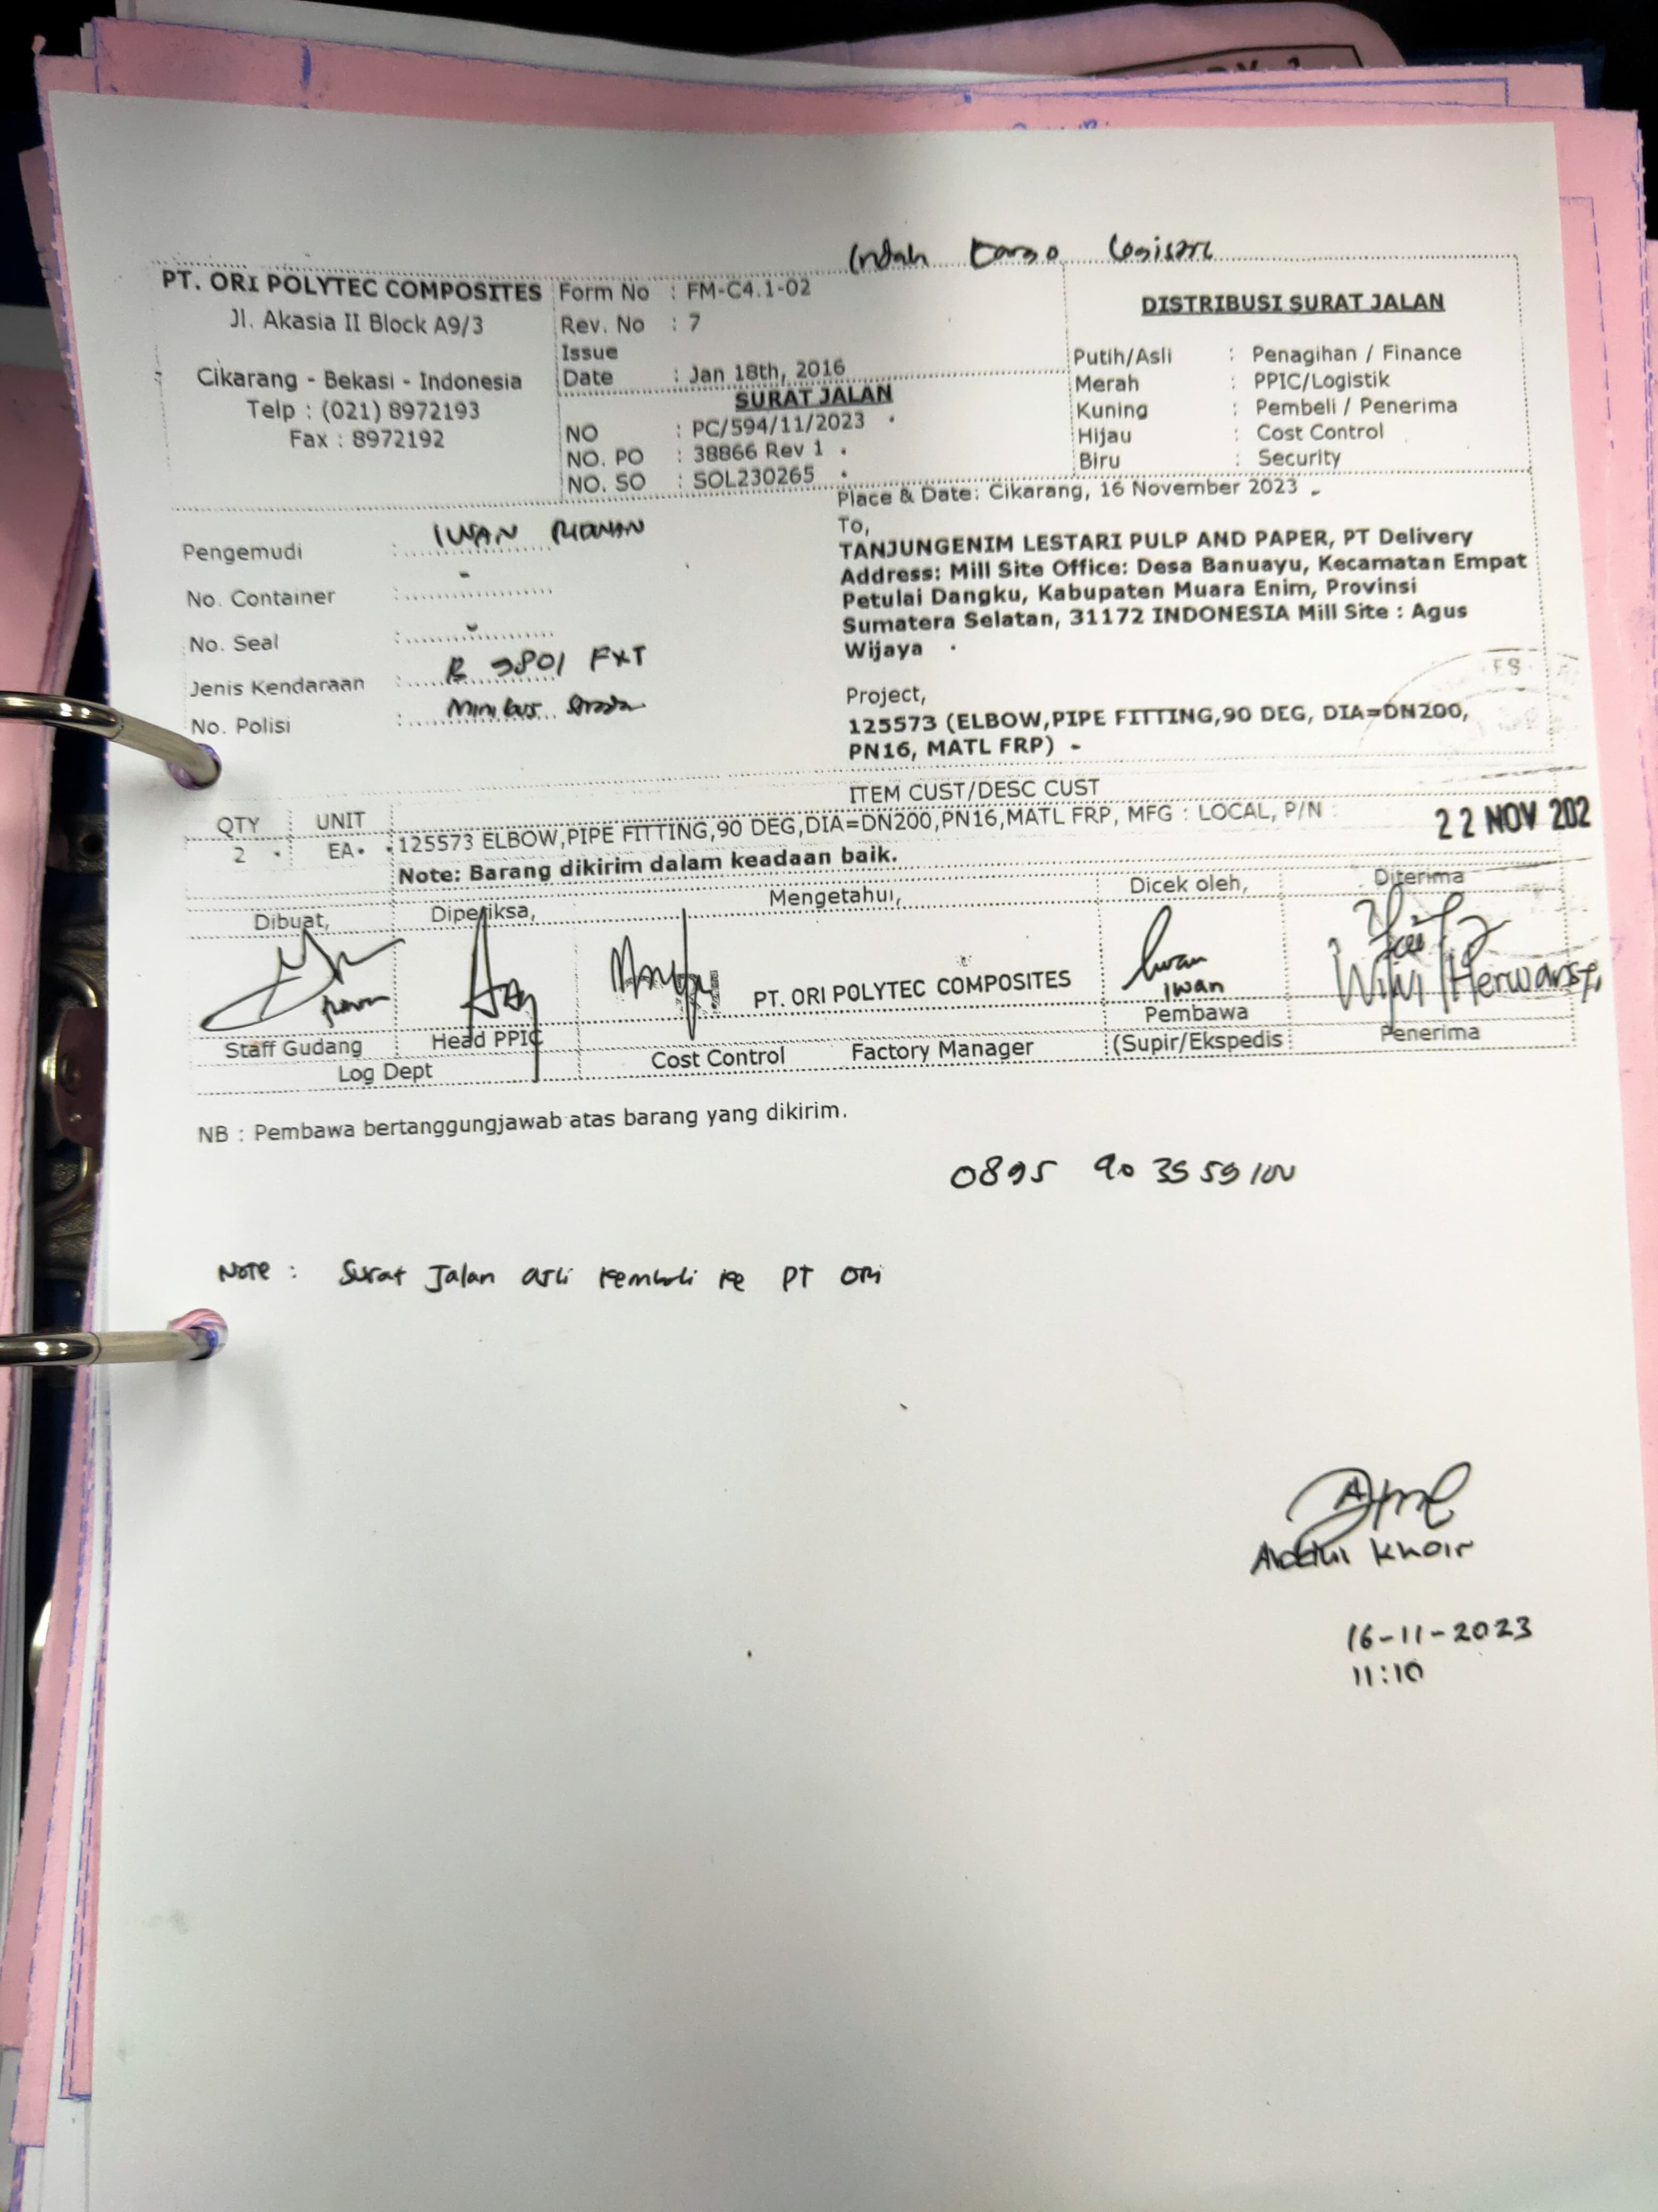 Indah Kargo Logistik
PT. ORI POLYTEC COMPOSITES
Jl. Akasia II Block A9/3
Cikarang - Bekasi - Indonesia
Telp : (021) 8972193
Fax : 8972192
Form No : FM-C4.1-02
Rev. No : 7
Issue
Date : Jan 18th, 2016
SURAT JALAN
NO : PC/594/11/2023
NO. PO : 38866 Rev 1
NO. SO : SOL230265
DISTRIBUSI SURAT JALAN
Putih/Asli : Penagihan / Finance
Merah : PPIC/Logistik
Kuning : Pembeli / Penerima
Hijau : Cost Control
Biru : Security
Place & Date: Cikarang, 16 November 2023
Pengemudi : IWAN RIDWAN
No. Container : -
No. Seal : -
Jenis Kendaraan : B 9801 FXT
No. Polisi : Minibus
To,
TANJUNGENIM LESTARI PULP AND PAPER, PT Delivery
Address: Mill Site Office: Desa Banuayu, Kecamatan Empat
Petulai Dangku, Kabupaten Muara Enim, Provinsi
Sumatera Selatan, 31172 INDONESIA Mill Site : Agus
Wijaya
Project,
125573 (ELBOW,PIPE FITTING,90 DEG, DIA=DN200,
PN16, MATL FRP) -
QTY UNIT ITEM CUST/DESC CUST
2 EA 125573 ELBOW,PIPE FITTING,90 DEG,DIA=DN200,PN16,MATL FRP, MFG : LOCAL, P/N :
22 NOV 202
Note: Barang dikirim dalam keadaan baik.
Dibuat, Diperiksa, Mengetahui, Dicek oleh, Diterima
PT. ORI POLYTEC COMPOSITES
Iwan
Iwan
Wiwi Herwansyi
Staff Gudang Head PPIC Cost Control Factory Manager Pembawa
(Supir/Ekspedis Penerima
Log Dept
NB : Pembawa bertanggungjawab atas barang yang dikirim.
Note : Surat Jalan asli kembali ke PT ORI
Abdul Khoir
16-11-2023
11:10